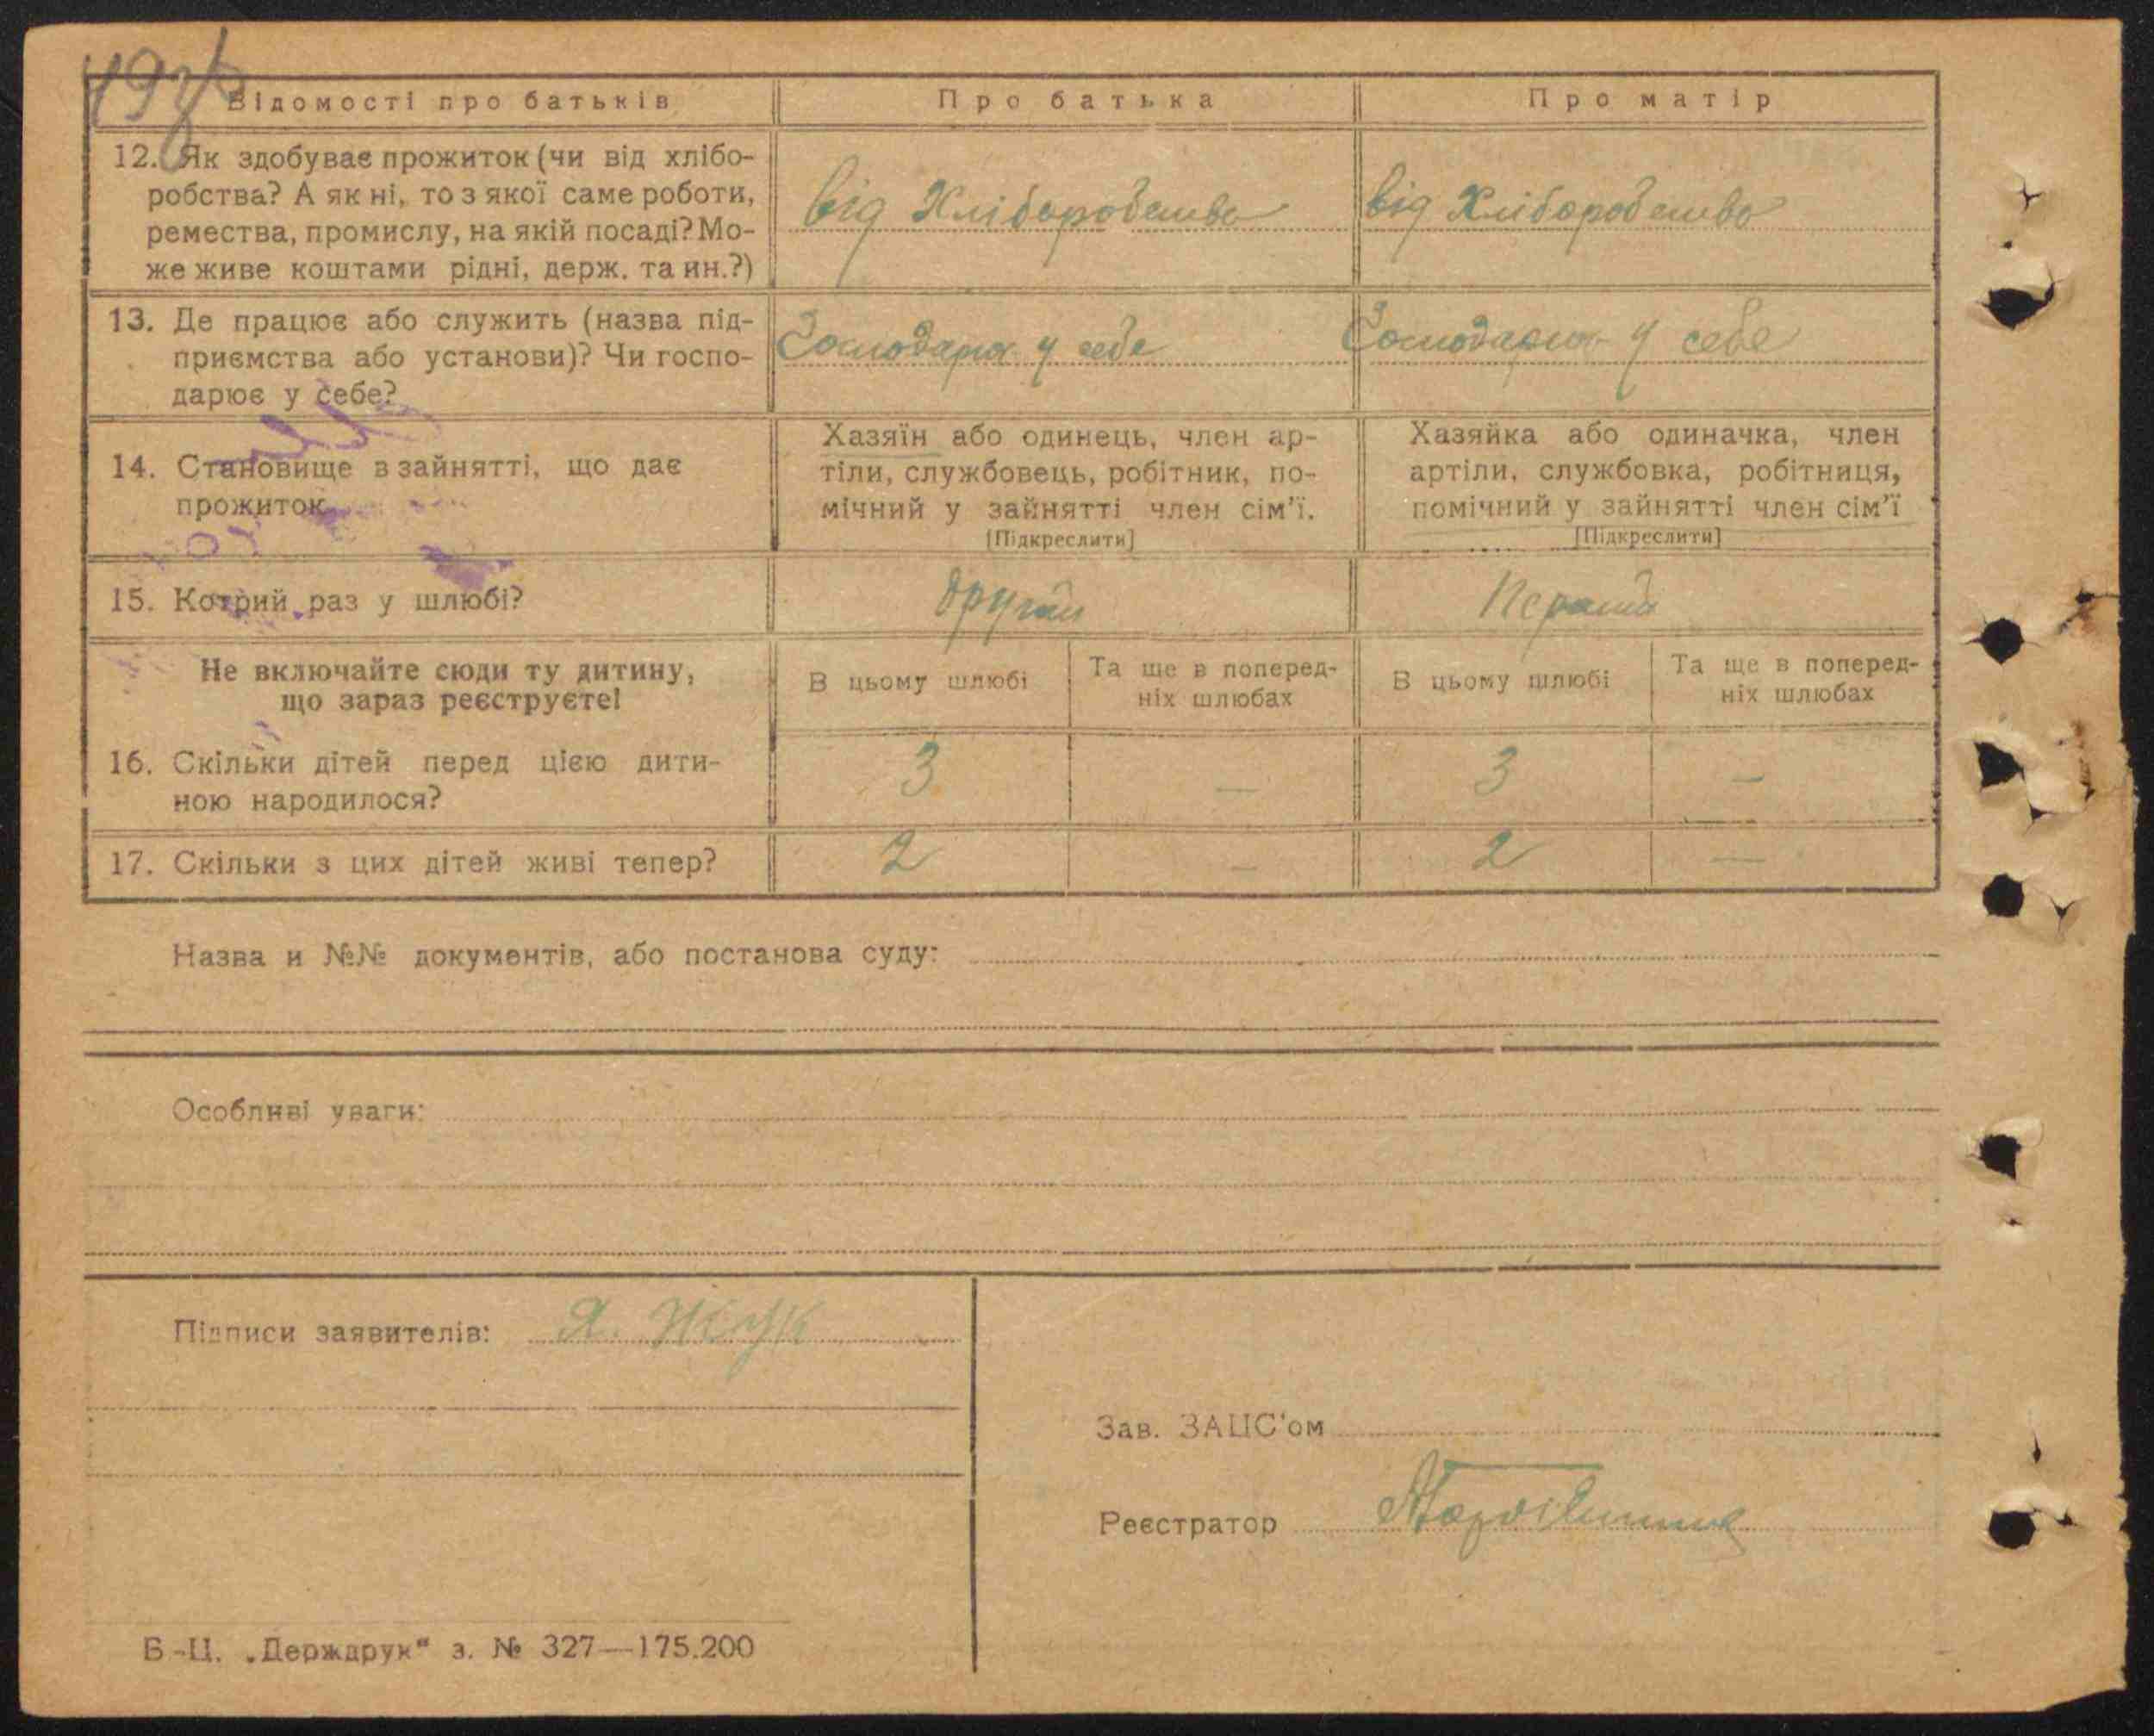 Відомості про батьків
Про батька
Про матір
12. Як здобуває прожиток (чи від хлібо-
робства? А як ні, то з якої саме роботи,
ремества, промислу, на якій посаді? Мо-
же живе коштами рідні, держ. та ин.?)
від Хліборобство
від Хліборобство
13. Де працює або служить (назва під-
приємства або установи)? Чи госпо-
дарює у себе?
у себе
у себе
14. Становище в зайнятті, що дає
прожиток
Хазяїн або одинець, член ар-
тіли, службовець, робітник, по-
мічний у зайнятті член сім'ї.
[Підкреслити]
Хазяйка або одиначка, член
артіли, службовка, робітниця,
помічний у зайнятті член сім'ї
[Підкреслити]
15. Котрий раз у шлюбі?
другий
Не включайте сюди ту дитину,
що зараз реєструєте!
В цьому шлюбі
Та ще в поперед-
ніх шлюбах
В цьому шлюбі
Та ще в поперед-
ніх шлюбах
16. Скільки дітей перед цією дити-
ною народилося?
3 — 3 —
17. Скільки з цих дітей живі тепер?
2 — 2 —
Назва и №№ документів, або постанова суду:
Особливі уваги:
Підписи заявителів: Я. Жук
Зав. ЗАЦС'ом
Реєстратор
Б-Ц. „Держдрук“ з. № 327—175.200